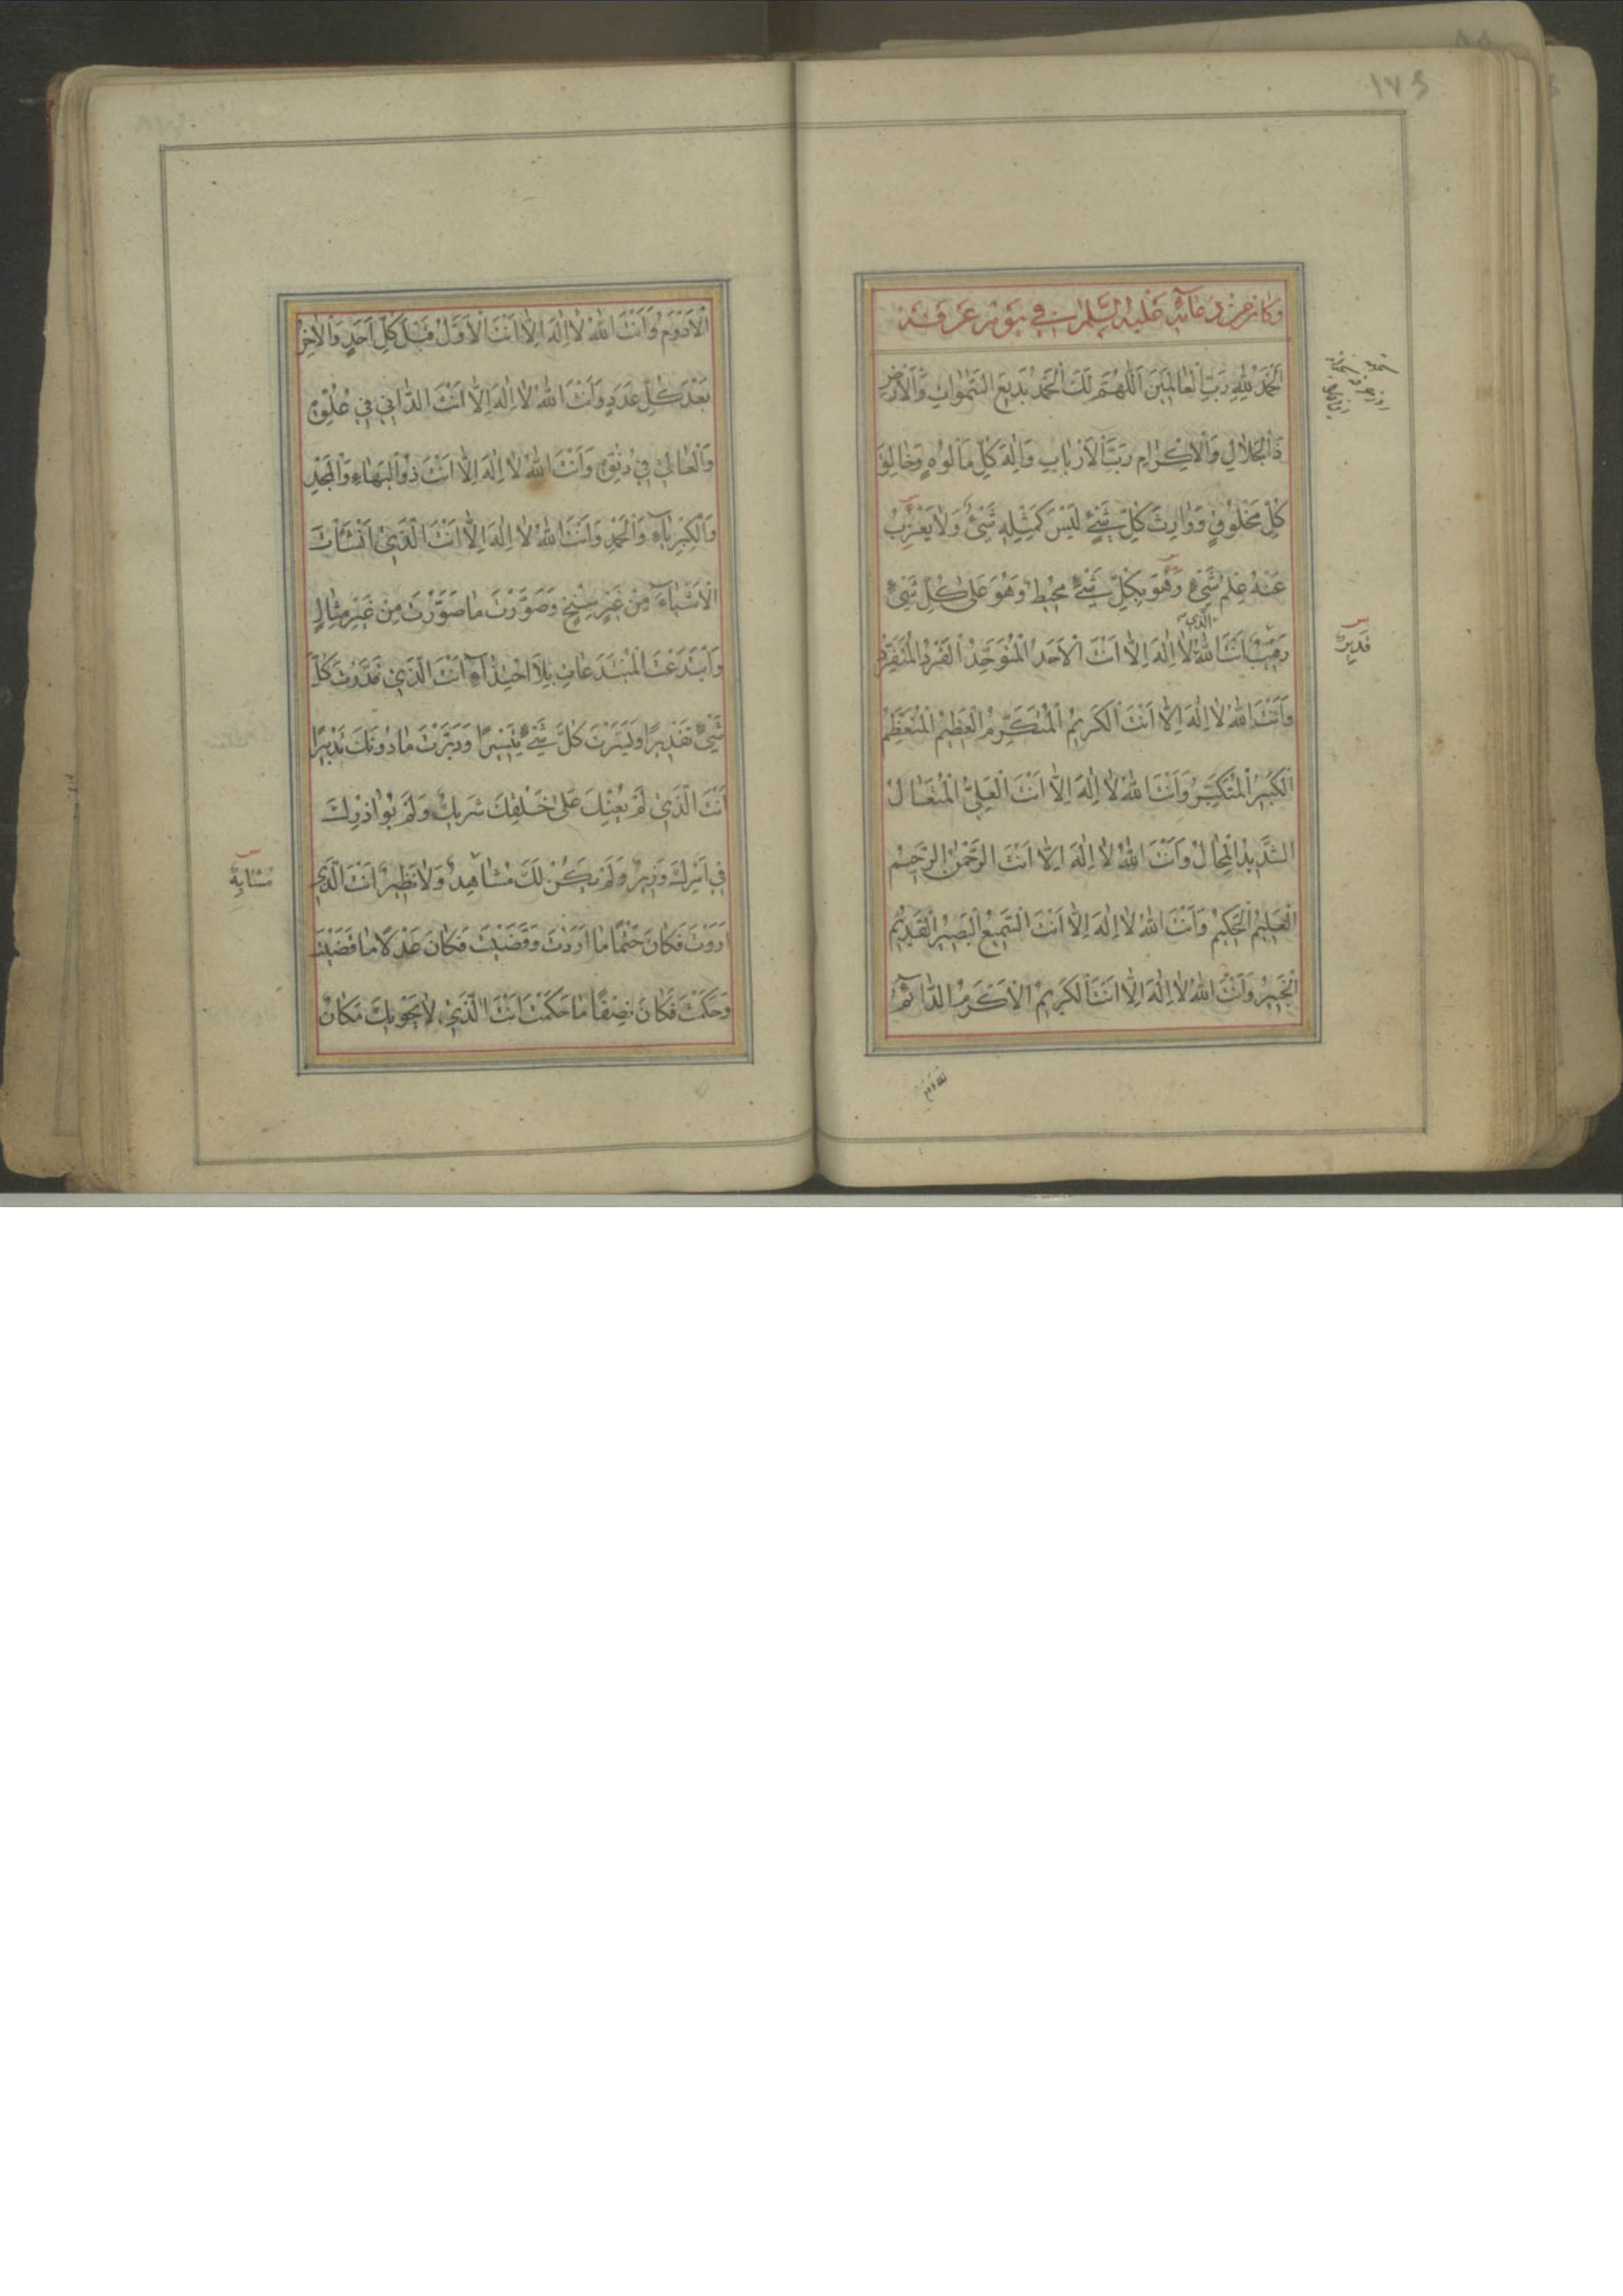 ١٧٤
وَكانَ مِنْ دُعائِهِ عَلَيْهِ السَّلامُ في يَوْمِ عَرَفَةَ
اَلْحَمْدُ لِلّهِ رَبِّ الْعالَمينَ اَللّهُمَّ لَكَ الْحَمْدُ بَديعَ السَّمواتِ وَالْاَرْضِ
ذَا الْجَلالِ وَالْاِكْرامِ رَبَّ الْاَرْبابِ وَاِلهَ كُلِّ مَاْلُوهٍ وَخالِقَ
كُلِّ مَخْلُوقٍ وَوارِثَ كُلِّ شَيْءٍ لَيْسَ كَمِثْلِهِ شَيْءٌ وَلا يَعْزُبُ
عَنْهُ عِلْمُ شَيْءٍ وَهُوَ بِكُلِّ شَيْءٍ مُحيطٌ وَهُوَ عَلى كُلِّ شَيْءٍ
الَّذي
رَقيبٌ اَنْتَ اللّهُ لا اِلهَ اِلاّ اَنْتَ الْاَحَدُ الْمُتَوَحِّدُ الْفَرْدُ الْمُتَفَرِّدُ
قَديرٌ
وَاَنْتَ اللّهُ لا اِلهَ اِلاّ اَنْتَ الْكَريمُ الْمُتَكَرِّمُ الْعَظيمُ الْمُتَعَظِّمُ
الْكَبيرُ الْمُتَكَبِّرُ وَاَنْتَ اللّهُ لا اِلهَ اِلاّ اَنْتَ الْعَلِيُّ الْمُتَعالْ
الشَّديدُ الْمِحالْ وَاَنْتَ اللّهُ لا اِلهَ اِلاّ اَنْتَ الرَّحْمنُ الرَّحيمُ
الْعَليمُ الْحَكيمُ وَاَنْتَ اللّهُ لا اِلهَ اِلاّ اَنْتَ السَّميعُ الْبَصيرُ الْقَديمُ
الْخَبيرُ وَاَنْتَ اللّهُ لا اِلهَ اِلاّ اَنْتَ الْكَريمُ الْاَكْرَمُ الدّائِمُ
الْاَدْوَمُ وَاَنْتَ اللّهُ لا اِلهَ اِلاّ اَنْتَ الْاَوَّلُ قَبْلَ كُلِّ اَحَدٍ وَالْاخِرُ
بَعْدَ كُلِّ عَدَدٍ وَاَنْتَ اللّهُ لا اِلهَ اِلاّ اَنْتَ الدّاني في عُلُوِّهِ
وَالْعالي في دُنُوِّهِ وَاَنْتَ اللّهُ لا اِلهَ اِلاّ اَنْتَ ذُو الْبَهاءِ وَالْمَجْدِ
وَالْكِبْرِياءِ وَالْحَمْدِ وَاَنْتَ اللّهُ لا اِلهَ اِلاّ اَنْتَ الَّذي اَنْشَأْتَ
الْاَشْياءَ مِنْ غَيْرِ سِنْخٍ وَصَوَّرْتَ ما صَوَّرْتَ مِنْ غَيْرِ مِثالٍ
وَابْتَدَعْتَ الْمُبْتَدَعاتِ بِلاَ احْتِذاءٍ اَنْتَ الَّذي قَدَّرْتَ كُلَّ
شَيْءٍ تَقْديرًا وَيَسَّرْتَ كُلَّ شَيْءٍ تَيْسيرًا وَدَبَّرْتَ ما دُونَكَ تَدْبيرًا
اَنْتَ الَّذي لَمْ يُعِنْكَ عَلى خَلْقِكَ شَريكٌ وَلَمْ يُوازِرْكَ
في اَمْرِكَ وَزيرٌ وَلَمْ يَكُنْ لَكَ مُشاهِدٌ وَلا نَظيرٌ اَنْتَ الَّذي
مُشابِهٌ
اَرَدْتَ فَكانَ حَتْمًا ما اَرَدْتَ وَقَضَيْتَ فَكانَ عَدْلًا ما قَضَيْتَ
وَحَكَمْتَ فَكانَ نِصْفًا ما حَكَمْتَ اَنْتَ الَّذي لا يَحْويكَ مَكانٌ